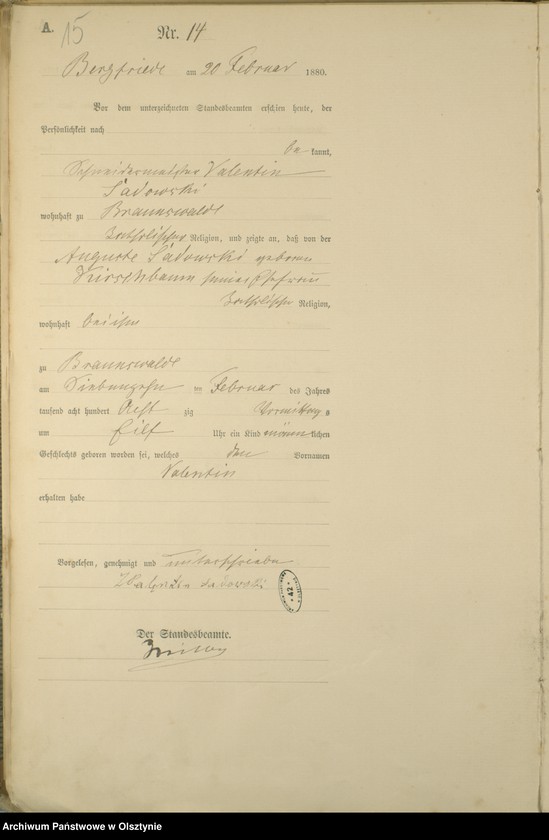 A. 15
Nr. 14
Bergfriede am 20 Februar 1880.
Vor dem unterzeichneten Standesbeamten erschien heute, der
Persönlichkeit nach
be kannt,
Schneidermeister Valentin
Sadowski
wohnhaft zu Braunswalde
katholischer Religion, und zeigte an, daß von der
Auguste Sadowski geboren
Kirschbaum seiner Ehefrau
katholischer Religion,
wohnhaft bei ihm
zu Braunswalde
am Siebenzehn ten Februar des Jahres
tausend acht hundert Acht zig Vormittag s
um Eilf Uhr ein Kind männ lichen
Geschlechts geboren worden sei, welches den Vornamen
Valentin
erhalten habe
Vorgelesen, genehmigt und unterschrieben
Valentin Sadowski
42
Der Standesbeamte.
Archiwum Państwowe w Olsztynie